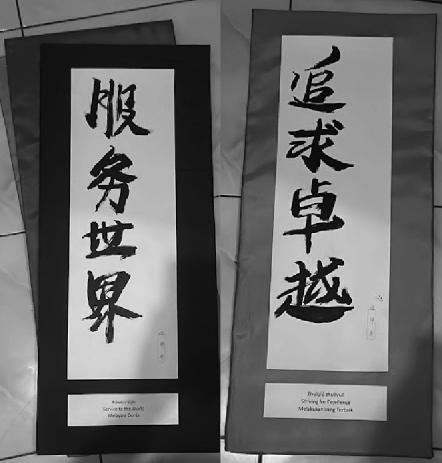 服务世界
Service to the World
Melayani Dunia
追求卓越
Zhuīqiú zhuóyuè
Striving for Excellence
Melakukan yang Terbaik